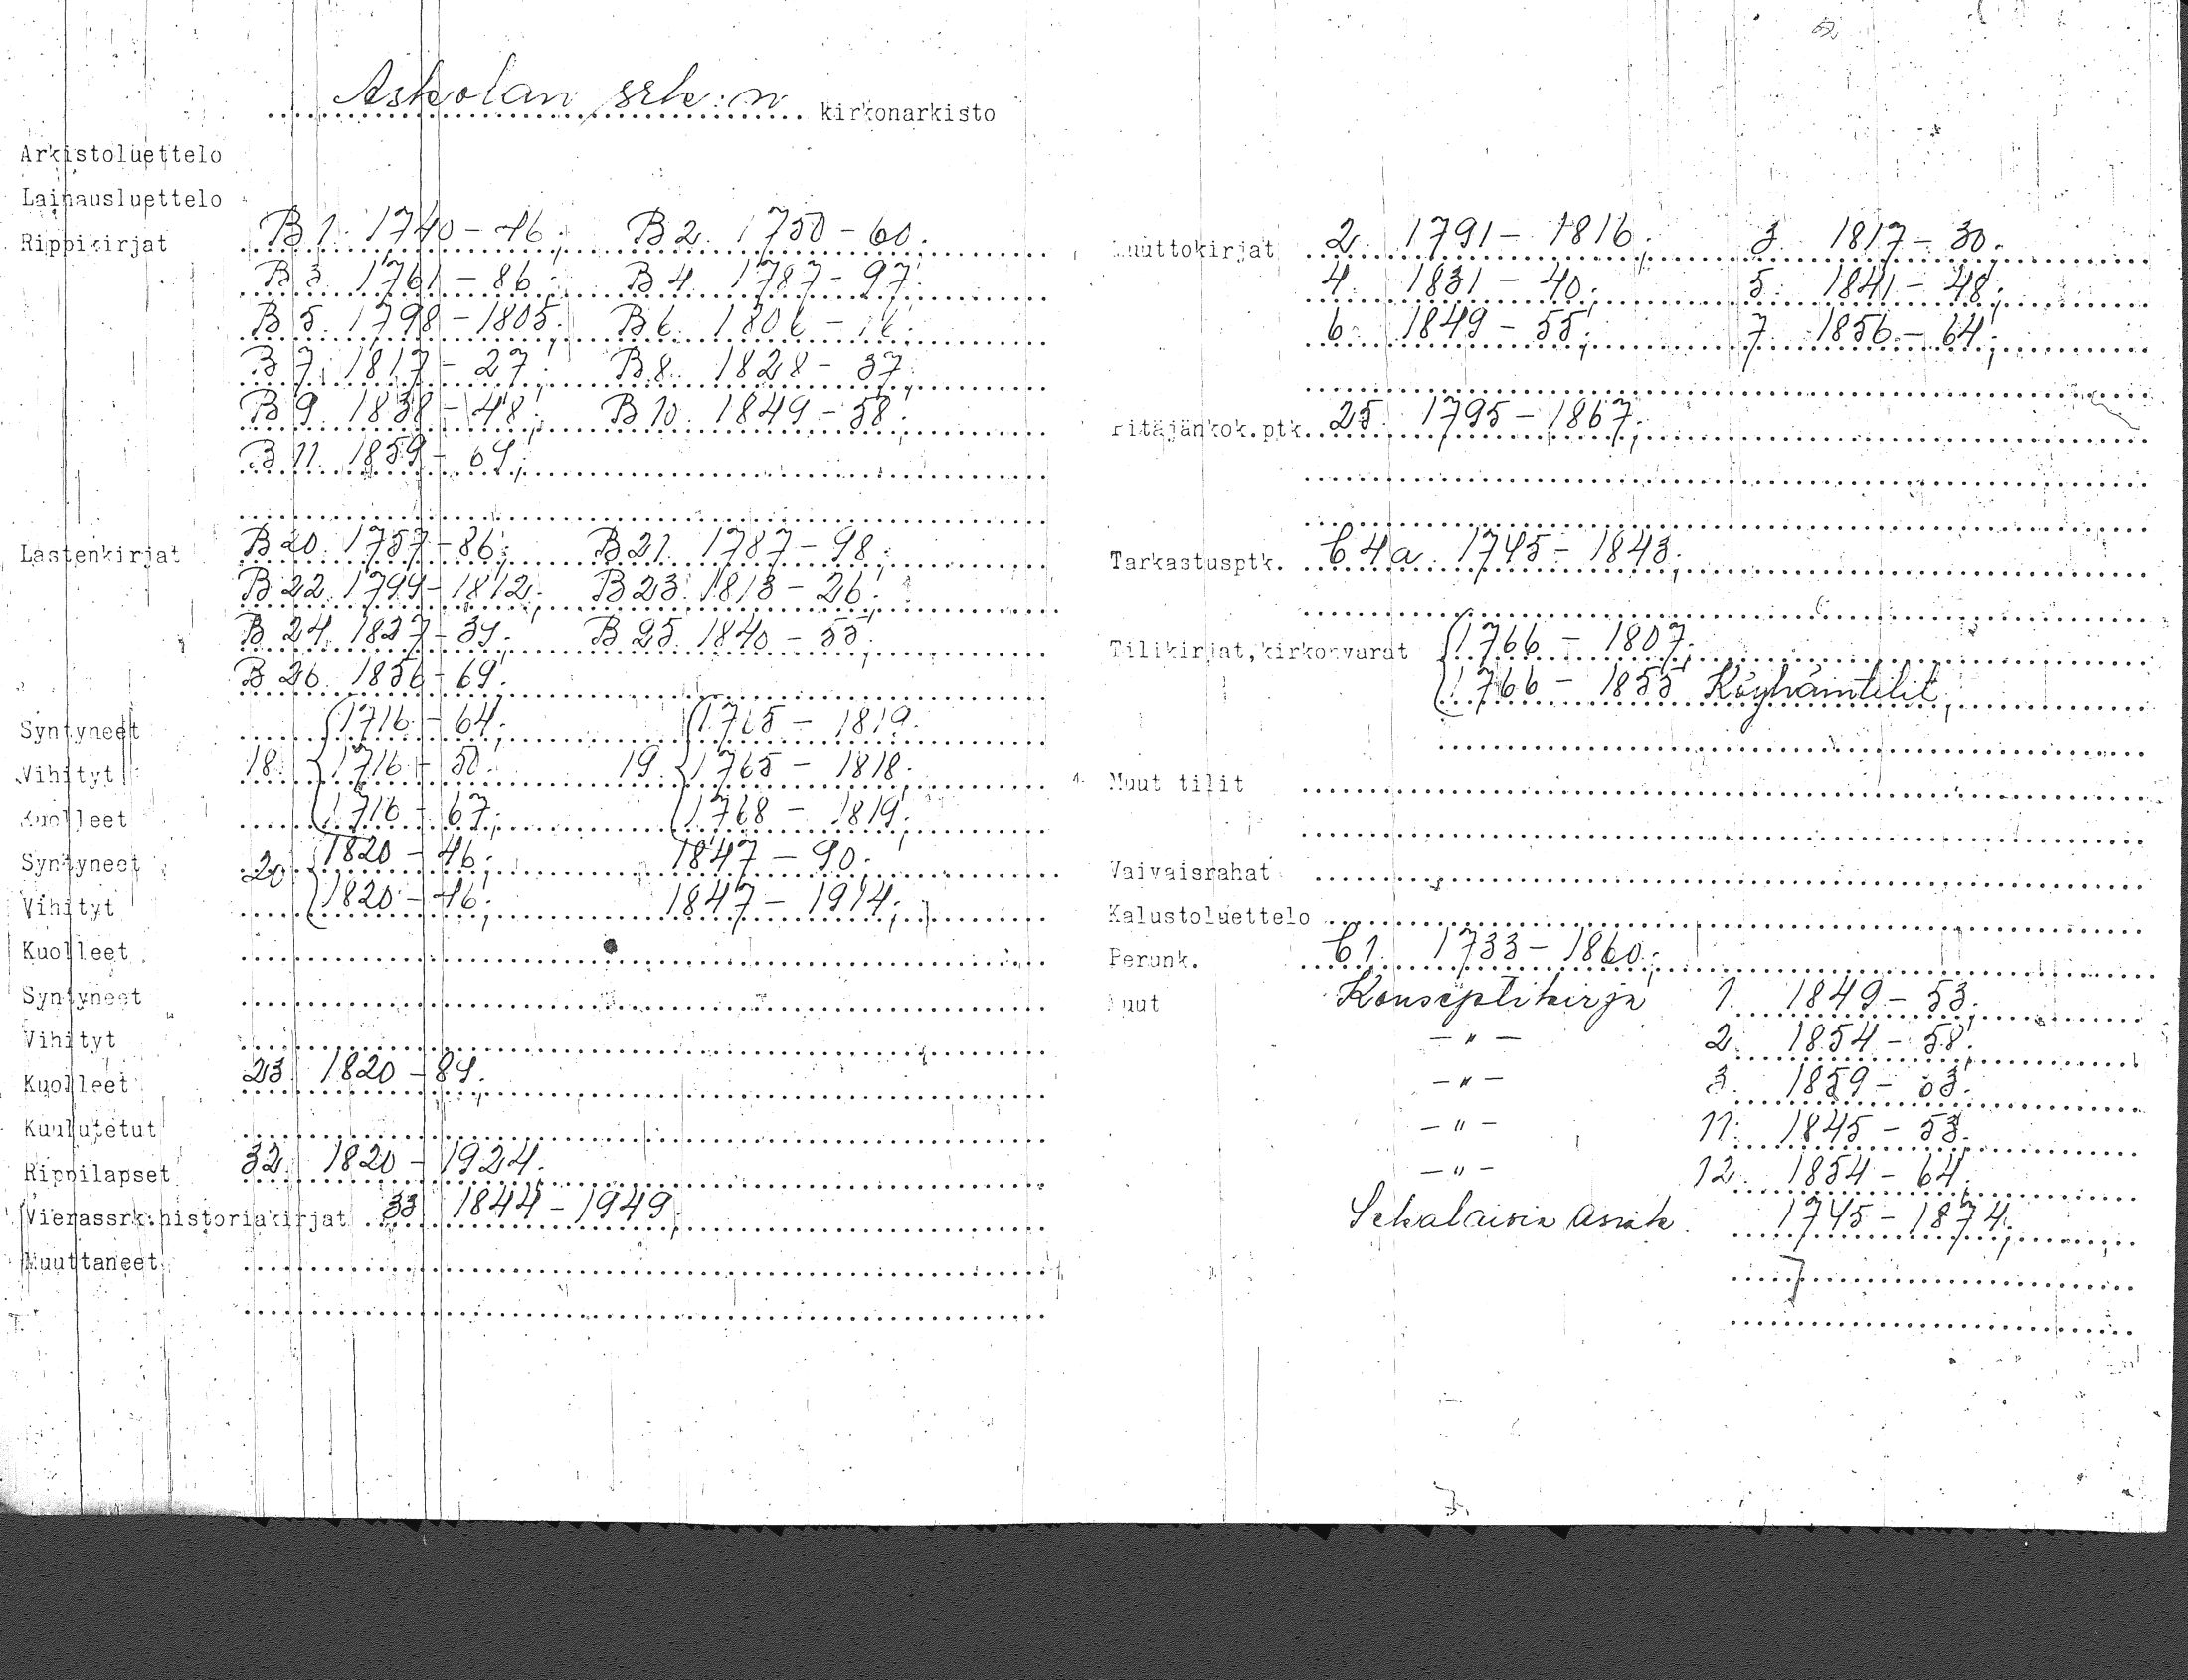 Askolan srk:n kirkonarkisto
Arkistoluettelo
Lainausluettelo
Rippikirjat B 1. 1740-46; B 2. 1750-60;
B 3. 1761-86; B 4. 1787-97;
B 5. 1798-1805; B 6. 1806-16;
B 7. 1817-27; B 8. 1828-37;
B 9. 1838-48; B 10. 1849-58;
B 11. 1859-69;
Lastenkirjat B 20. 1757-86; B 21. 1787-98;
B 22. 1799-1812; B 23. 1813-26;
B 24. 1827-39; B 25. 1840-55;
B 26. 1856-69;
Syntyneet 1716-64; 1765-1819;
Vihityt 18. 1716-50; 19. 1765-1818;
Kuolleet 1716-67; 1768-1819;
Syntyneet 20. 1820-46; 1847-90;
Vihityt 1820-46; 1847-1914;
Kuolleet
Syntyneet
Vihityt
Kuolleet 23. 1820-89;
Kuulutetut
Rippilapset 32. 1820-1924;
Vierassrk:historiakirjat 33 1844-1949;
Muuttaneet
Muuttokirjat 2. 1791-1816; 3. 1817-30;
4. 1831-40; 5. 1841-48;
6. 1849-55; 7. 1856-64;
Pitäjänkok.ptk. 25. 1795-1867;
Tarkastusptk. C 4 a. 1745-1843;
Tilikirjat,kirkonvarat 1766-1807;
1766-1855 Köyhäintilit;
Muut tilit
Vaivaisrahat
Kalustoluettelo
Perunk. C 1. 1733-1860;
Muut Konseptikirja 1. 1849-53;
-"- 2. 1854-58;
-"- 3. 1859-63;
-"- 11. 1845-53;
-"- 12. 1854-64;
Sekalaisia asiak. 1745-1874;